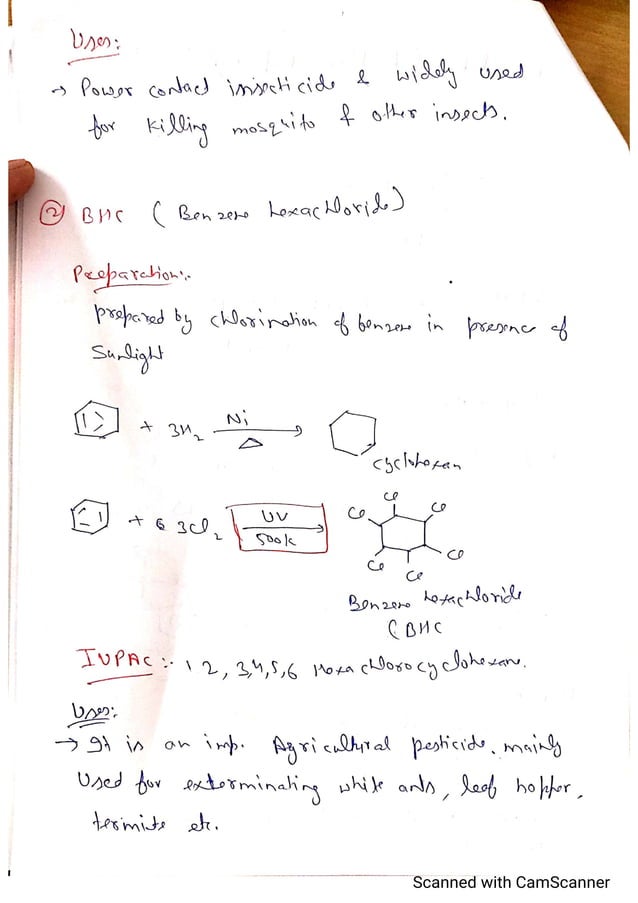 Uses:
→ Power contact insecticide & widely used
for killing mosquito & other insects.
② BHC ( Benzene hexachloride)
Preparation:-
prepared by chlorination of benzene in presence of
Sunlight
+ 3H2 Ni Δ
Cyclohexan
+ 6 3Cl2 UV 500k
Cl Cl Cl Cl Cl Cl
Benzene hexachloride
(BHC
IUPAC :- 1 2, 3,4,5,6 Hexa chloro cyclohexan.
Uses:
→ It is an imp. Agricultural pesticide. mainly
Used for exterminating white ants, leaf hopper,
termite etc.
Scanned with CamScanner